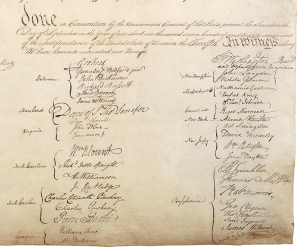 Done in Convention by the Unanimous Consent of the States present the Seventeenth
Day of September in the Year of our Lord one thousand seven hundred and Eighty seven and
of the Independance of the United States of America the Twelfth In Witness
We have hereunto
Delaware
Geo: Read
Gunning Bedford jun
John Dickinson
Richard Bassett
Jaco: Broom
Maryland
James McHenry
Dan of St Thos Jenifer
Danl Carroll
Virginia
John Blair
North Carolina
Wm Blount
Richd Dobbs Spaight
Hu Williamson
South Carolina
J. Rutledge
Charles Cotesworth Pinckney
Charles Pinckney
Pierce Butler
Georgia
William Few
Abr Baldwin
New Hampshire
John Langdon
Nicholas Gilman
Massachusetts
Nathaniel Gorham
Rufus King
Connecticut
Wm Saml Johnson
Roger Sherman
New York
Alexander Hamilton
New Jersey
Wil: Livingston
David Brearley
Wm Paterson
Jona: Dayton
Pensylvania
B Franklin
Thomas Mifflin
Robt Morris
Geo. Clymer
James Wilson